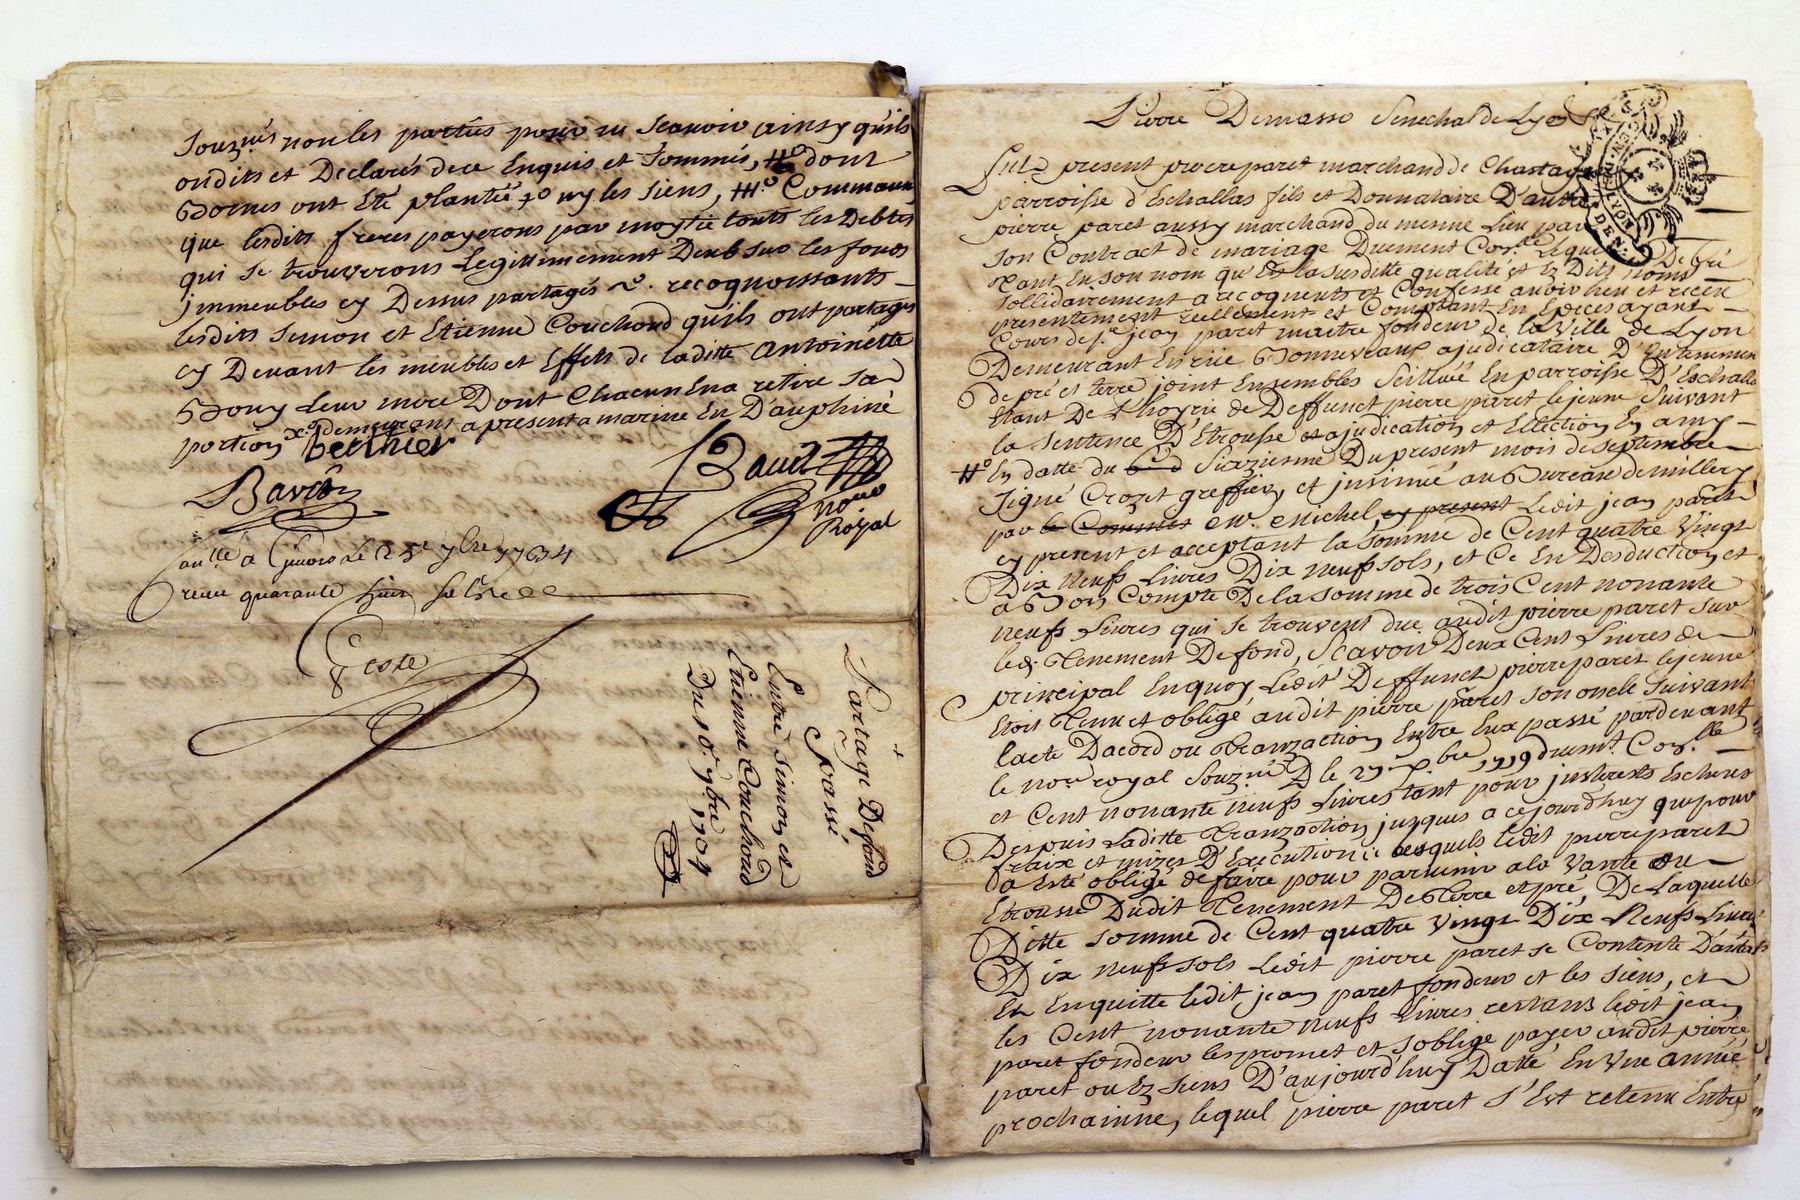 souz.nés non les parties pour ne scavoir ainsy quils
ondits et Declarés de ce Enquis et sommés, #o dont
Bornes ont Eté plantée ny les siens, Comme aussi
que lesdits freres payerons par moytié touts les Debtes
qui se trouverons Legitimement Deub sur les fonds
jmmeubles cy Dessus partagés recognoissants
lesdits simon et Etienne Couchoud quils ont partagés
cy Devant les meubles et Effets de laditte antoinette
Bony leur mere Dont Chacun En a retiré sa
portion demeurans a present a marine En Dauphiné
berthier
Bavit
Bavit
no.re
Royal
a Givors le 25e 7bre 1734
receu quarante huit
Coste
Partage De fond
passé,
Entre Simon et
Etienne Couchoud
Du 10 7bre
Pierre Demasso Senechal de Lyon
Fut present pierre paret marchand de
parroisse d'Eschallas fils et Donnataire D'autre
pierre paret aussy marchand du mesme Lieu par
son Contract de mariage Duement
tant En son nom qu'En la susditte qualité et Ez Dits noms
sollidairement a recogneu et Confessé avoir heu et receu
presentement reellement et Comptant En Especes ayant
Cours de s.r jean paret maitre fondeur de la Ville de Lyon
Demeurant En rüe Bonneveaux ajudicataire D'un tenement
de pré et terre joint Ensembles scittué En parroisse D'Eschallas
Etant De l'hoyrie de Deffunct pierre paret lejeune suivant
la sentence D'Etrousse et ajudication et Ellection En amy
#o En datte du seizieme Du present mois de septembre
signé Crozet greffier, et jnsinué au Bureau de millery
par le Commis michel cy present Ledit jean paret
cy present et acceptant la somme de Cent quatre Vingt
Dix neufs Livres Dix neufs sols, et Ce En Desduction et
a Bon Compte De la somme de trois Cent nonante
neufs Livres qui se trouvent due audit pierre paret sur
led. Tenement De fond, scavoir Deux Cent Livres de
principal En quoy Ledit Deffunct pierre paret lejeune
Etoit Tenu et obligé audit pierre paret son oncle suivant
lacte Dacord ou Tranzaction Entre Eux passé pardevant
le no.re royal souz.né le 27 1719 duemt. Con.llé
et Cent nonante neufs Livres tant pour jnterests Escheus
Despuis Laditte Tranzaction jusques a cejourd'huy que pour
fraix et mizes D'Execution lesquels ledit pierre paret
a Esté obligé de faire pour parvenir a la Vante ou
Etrousse Dudit Tenement De Terre et pré, De Laquelle
Ditte somme de Cent quatre Vingt Dix Neufs Livres
Dix neufs sols Ledit pierre paret se Contente
En Enquitte ledit jean paret fondeur et les siens, et
les Cent nonante neufs Livres restans ledit jean
paret fondeur les promet et s'oblige payer audit pierre
paret ou Ez siens D'aujourd'huy Datte En Une année
prochainne, lequel pierre paret s'Est retenu Entre